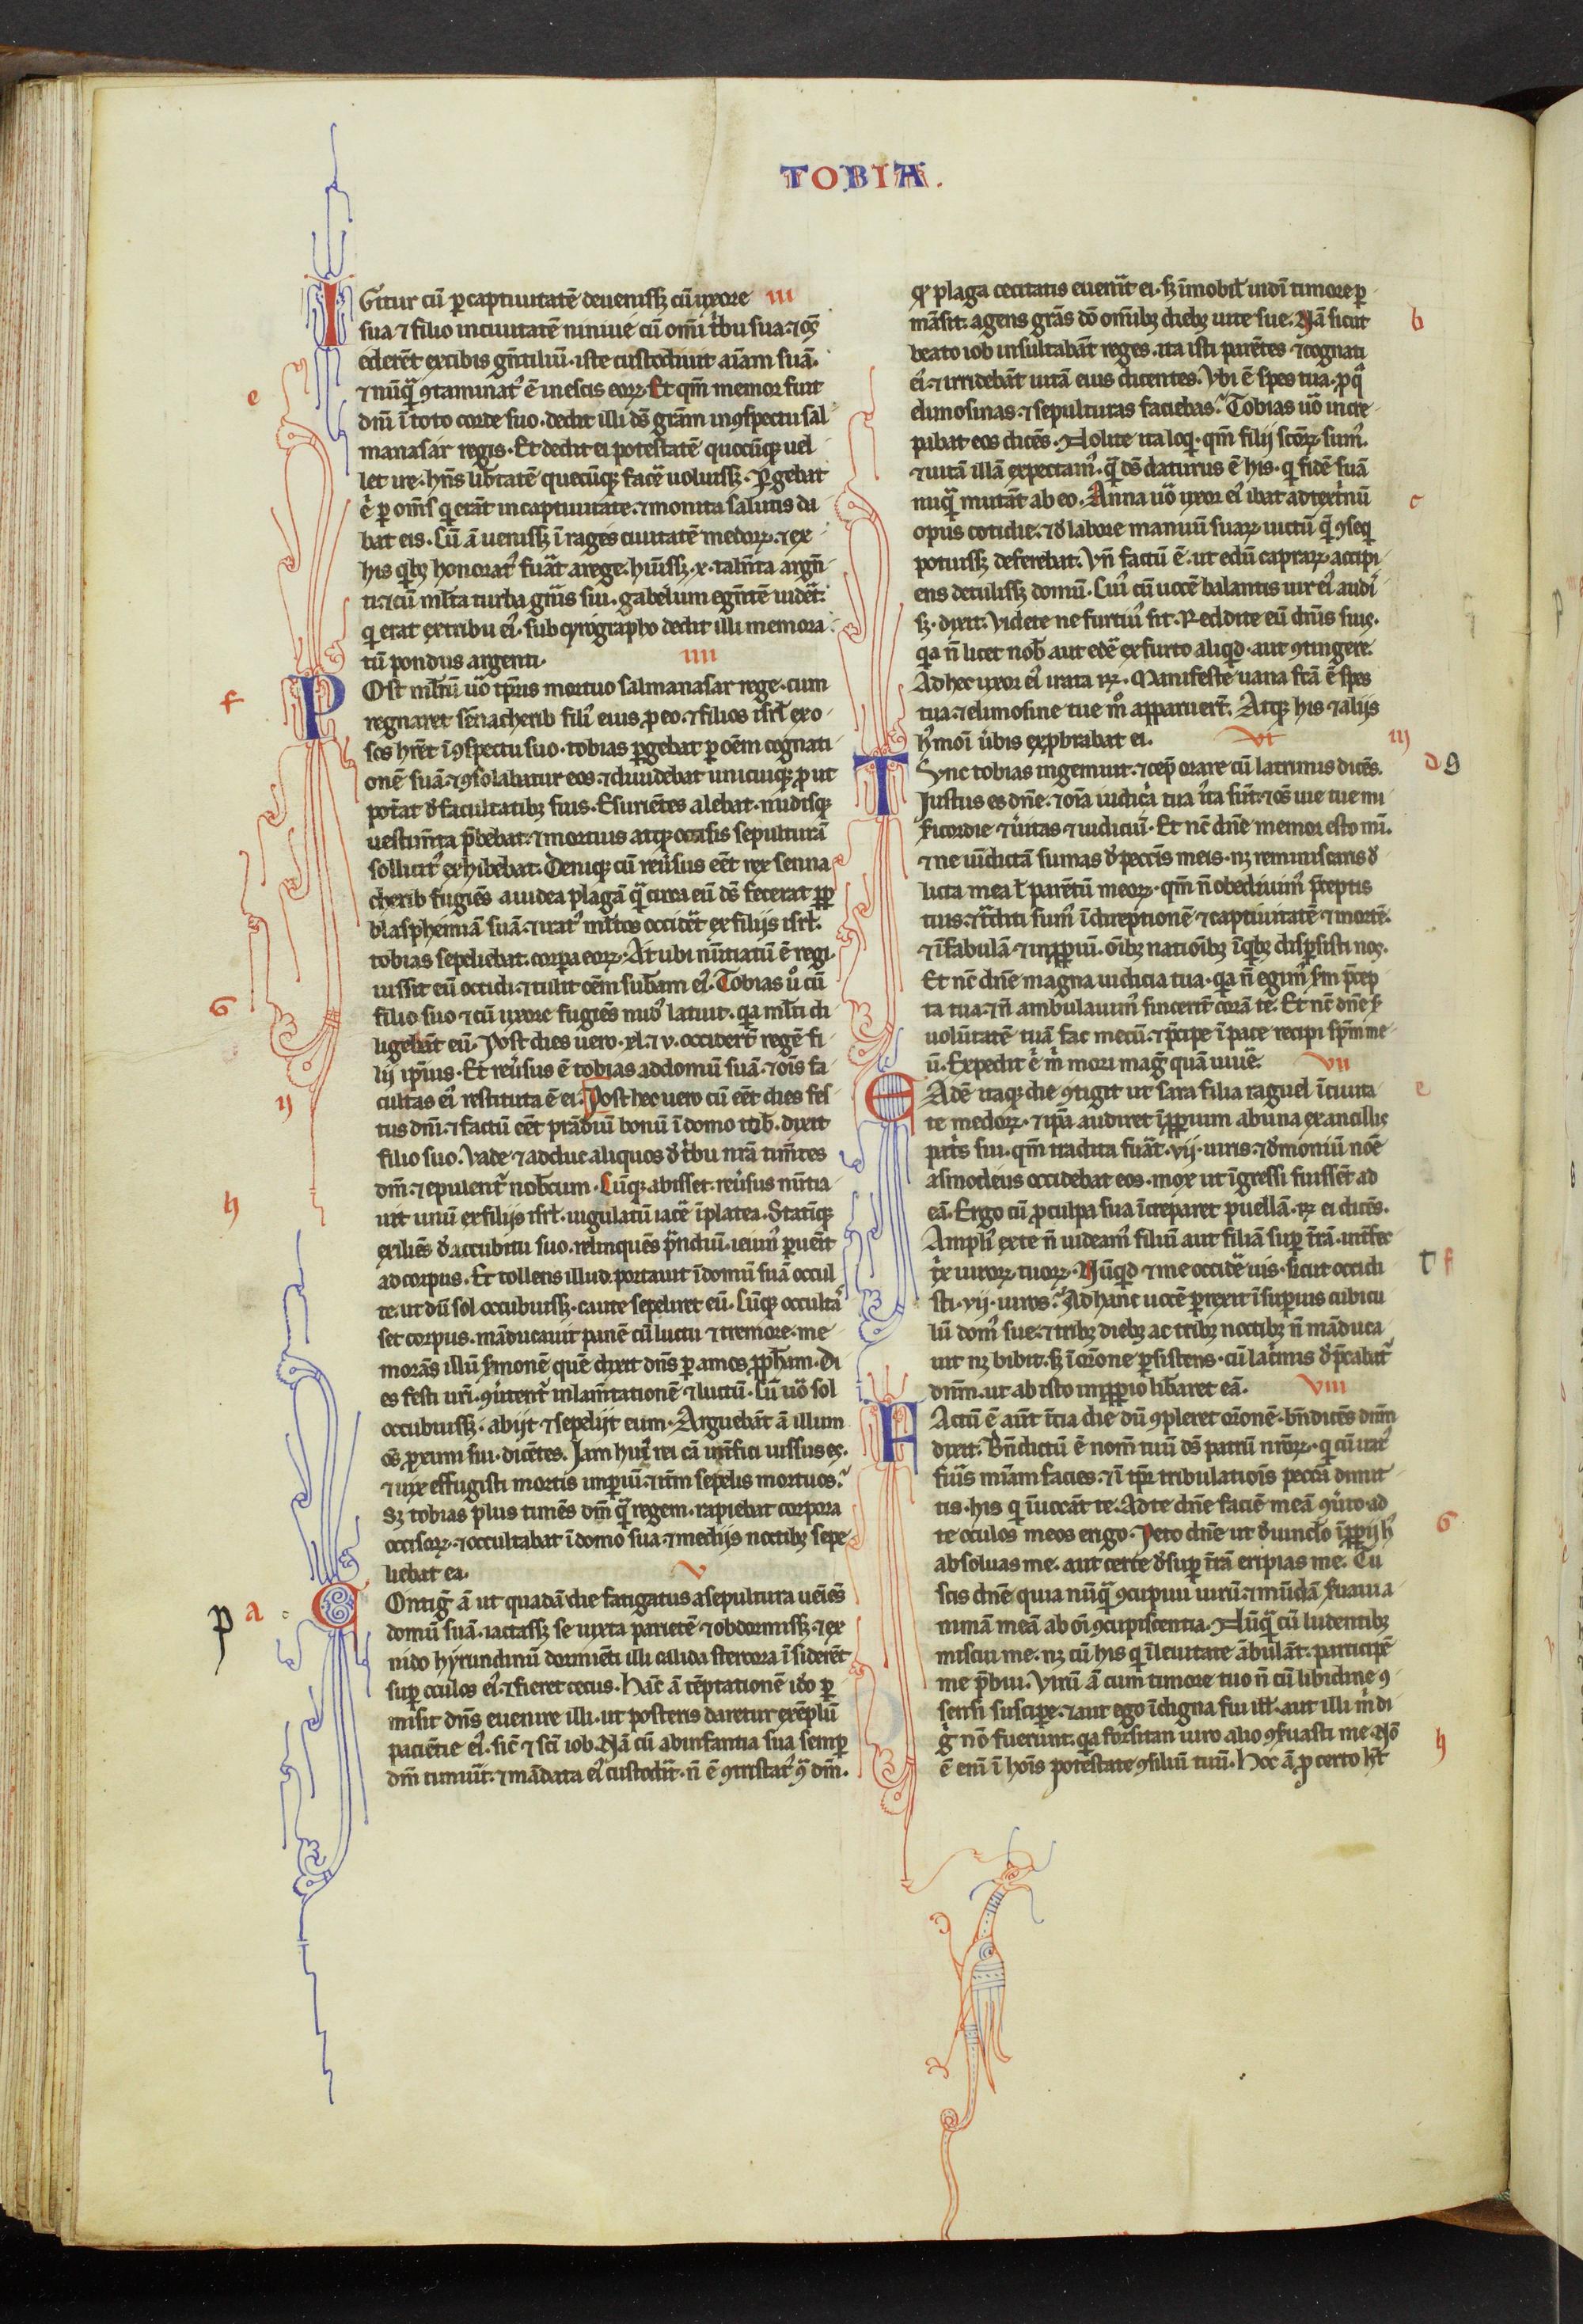 TOBIA.
Gitur cū p captiuitatē deuenissꝫ cū uxore III
sua ⁊ filio inciuitatē niniue cū om̄i tͥbu sua. ⁊ oꝫ
ederēt excibis gn̄tiliū. iste custodiuit aīam suā.
⁊ nūqͣ ꝯtaminatꝰ ē in escis eoꝝ. Et qm̄ memor fuit
dnī ī toto corde suo. dedit illi dꝫ grām inꝯspectu sal
manasar regis. Et dedit ei potestatē quocūqꝫ uel
let ire. hn̄s lib̄tatē quecūqꝫ facē uoluissꝫ. Pgebat
ḡ p om̄s qi erāt incaptiuitate. ⁊ monita salutis da
bat eis. Cū ā uenissꝫ ī rages ciuitatē medoꝝ. ⁊ ex
his qͥbꝫ honoratꝰ fuāt arege. hūissꝫ .x. talēta argn̄
ti. ⁊ cū ml̄ta turba gn̄is sui. gabelum egn̄tē uidēt.
qi erat extribu eiꝰ. sub cyrographo dedit illi memora
tū pondus argenti. IIII
Ost ml̄tū uō tp̄ris mortuo salmanasar rege. cum
regnaret sēnacherib filiꝰ eius p eo. ⁊ filios isrl̄ exo
sos hrēt ī ꝯspectu suo. tobias pgebat p oēm cognati
onē suā. ⁊ ꝯsolabatur eos. ⁊ diuidebat unicuiqꝫ p ut
pot̄at d̄ facultatibꝫ suis. Esuriētes alebat. nudisqꝫ
uestimn̄ta p̄bebat. ⁊ mortuis atqꝫ occisis sepulturā
sollicitꝰ exhibebat. Deniqꝫ cū reūsus eēt rex senna
cherib fugiēs a iudea plagā qͣ circa eū dꝫ fecerat ꝓp̄
blasphemiā suā. ⁊ iratꝰ ml̄tos occidēt ex filijs isrl̄.
tobias sepeliebat corpa eoꝝ. At ubi nūtiatū ē regi.
iussit eū occidi. ⁊ tulit oēm sub̄am eiꝰ. Tobias ů cū
filio suo ⁊ cū uxore fugiēs nudꝰ latuit. qa ml̄ti di
ligebāt eū. Post dies uero .xl. ⁊ v. occiderūt regē fi
lij ip̄ius. Et reūsus ē tobias addomū suā. ⁊ oīs fa
cultas eiꝰ restituta ē ei. Post hec uero cū eēt dies fes
tus dnī. ⁊ factū eēt prādiū bonū ī domo tob̄. dixit
filio suo. Vade ⁊ adduc aliquos d̄ tͥbu nr̄a timētes
dm̄. ⁊ epulent nob̄cum. Cūqꝫ abisset. reūsus nūtia
uit unū ex filijs isrl̄. iugulatū iacē īplatea. Statīqꝫ
exiliēs d̄ accubitu suo. relinquēs p̄ndiū. ieiunꝰ puēit
ad corpus. Et tollens illud. portauit ī domū suā occul
te. ut dū sol occubuissꝫ. caute sepeliret eū. Cūqꝫ occultā
set corpus. māducauit panē cū luctu ⁊ tremore. me
morās illū s̄monē quē dixit dn̄s p amos ꝓph̄am. Di
es festi ur̄i. ꝯūtent inlamn̄tationē ⁊ luctū. Cū uō sol
occubuissꝫ. abijt ⁊ sepelijt eum. Arguebāt ā illum
oꝫ ꝓximi sui. dicētes. Iam huiꝰ rei cā int̄fici iussus es.
⁊ uix effugisti mortis imp̄iū. ⁊ itm̄ sepelis mortuos.
Sꝫ tobias plus timēs dm̄ qͣ regem. rapiebat corpora
occisoꝝ. ⁊ occultabat ī domo sua. ⁊ medijs noctibꝫ sepe
liebat ea. V
Ontig̊ ā ut quadā die fatigatus asepultura ueīēs
domū suā. iactassꝫ se iuxta parietē ⁊ obdormissꝫ. ⁊ ex
nido hyrundinū dormiēti illi calida stercora ī siderēt
sup oculos eiꝰ. ⁊ fieret cecus. Hāc ā tēptationē iō p
misit dn̄s euenire illi. ut posteris daretur exēplū
paciētie eiꝰ. sic̄ ⁊ sci iob. Nā cū abinfantia sua semp
dm̄ timuīt. ⁊ mādata eiꝰ custodīt. n̄ ē ꝯtristatꝰ ꝯ̄ dm̄.
qꝫ plaga cecitatis euenīt ei. sꝫ īmobil̄ indī timore p
māsit. agens grās dō om̄ibꝫ diebꝫ uite sue. Nā sicut
beato iob insultabāt reges. ita isti parētes ⁊ cognati
eiꝰ. ⁊ irridebāt uitā eius dicentes. Vbi ē spes tua. ꝓ qͣ
elimosinas. ⁊ sepulturas faciebas. Tobias uō incre
pabat eos dicēs. Nolite ita loqi. qm̄ filij scōꝝ sumꝰ.
⁊ uitā illā expectamꝰ. qͣ dꝫ daturus ē his. qi fidē suā
nūqͣ mutāt ab eo. Anna uō uxor eiꝰ ibat adtextͥnū
opus cotidie. ⁊ d̄ labore manuū suaꝝ uictū qͣ ꝯseqi
potuissꝫ deferebat. Vn̄ factū ē. ut edū capraꝝ accipi
ens detulissꝫ domū. Cuiꝰ cū uocē balantis uir eiꝰ audi
sꝫ. dixit. Videte ne furtiuꝰ sit. Reddite eū dn̄is suis.
qa n̄ licet nob̄ aut edē exfurto aliqͥd. aut ꝯtingere.
Adhec uxor eiꝰ irata rͥ. Manifeste uana fcā ē spes
tua. ⁊ elimosine tue mº apparuert̄. Atqꝫ his ⁊ alijs
hꝰmoi ūbis exprobrabat ei. VI
Vnc tobias ingemuit. ⁊ cep̄ orare cū lacrimis dicēs.
Iustus es dn̄e. ⁊ oīa iudicia tua ita sūt. ⁊ oꝫ uie tue mi
sicordie ⁊ ūitas ⁊ iudiciū. Et nc̄ dn̄e memor esto mī.
⁊ ne uīdictā sumas d̄ peccis meis. nꝫ reminiscaris d̄
licta mea l̄ parētū meoꝝ. qm̄ n̄ obediuimꝰ p̄ceptis
tuis. ⁊ tͣditi sumꝰ ī direptionē ⁊ captiuitatē ⁊ mortē.
⁊ ī fabulā ⁊ inꝓpiū. oībꝫ natioībꝫ ī qͥbꝫ dispsisti nos.
Et nc̄ dn̄e magna iudicia tua. qa n̄ egimꝰ s̄m p̄cep
ta tua. ⁊ n̄ ambulauimꝰ sincerit̄ corā te. Et nc̄ dn̄e s̄
uolūtatē tuā fac mecū. ⁊ p̄cipe ī pace recipi sp̄m me
ū. Expedit ē m̄ mori mag̊ quā uiuē. VII
Adē itaqꝫ die ꝯtigit ut sara filia raguel ī ciuita
te medoꝝ. ⁊ ip̄a audiret īꝓprium abuna ex ancillis
patͥs sui. qm̄ tradita fuāt .vij. uiris. ⁊ d̄moniū noīe
asmodeus occidebat eos. mox ut īgressi fuissēt ad
eā. Ergo cū ꝓ culpa sua īcreparet puellā. rͥ ei dicēs.
Ampliꝰ exte n̄ uideamꝰ filiū aut filiā sup t̄rā. int̄fec
tͥx uiroꝝ tuoꝝ. Nūqͥd ⁊ me occidē uis. sicut occidi
sti .vij. uiros. Ad hanc uocē prexit ī supius cubicu
lū domꝰ sue. ⁊ tribꝫ diebꝫ ac tribꝫ noctibꝫ n̄ māduca
uit nꝫ bibit. sꝫ ī orōne psistens. cū lacͥmis d̄p̄cabatr̄
dnm̄. ut ab isto inꝓpio lib̄aret eā. VIII
Actū ē aut̄ t̄cia die dū ꝯpleret orōnē. bn̄dicēs dnm̄
dixit. Bn̄dictū ē nom̄ tuū dꝫ patrū nroꝝ. qi cū iratꝰ
fuīs mīam facies. ⁊ ī tp̄r tribulatiōis pecca dimit
tis. his qi īuocāt te. Ad te dn̄e faciē meā ꝯūto. ad
te oculos meos erigo. Peto dn̄e ut d̄ uinclo īꝓpij hꝰ
absoluas me. aut certe d̄sup t̄rā eripias me. Tu
scis dn̄e quia nūqͣ ꝯcupiui uirū. ⁊ mūdā s̄uaui a
nimā meā ab oī ꝯcupiscentia. Nūqͣ cū ludentibꝫ
miscui me. nꝫ cū his qi ī leuitate ābulāt. participē
me p̄bui. Virū ā cum timore tuo n̄ cū libidine ꝯ
sensi suscipe. ⁊ aut ego īdigna fui ill̄. aut illi m̄ di
gͥ nō fuerunt. qa forsitan uiro alio ꝯs̄uasti me. Nō
ē enī ī hoīs potestate ꝯsiliū tuū. Hoc ā ꝓ certo ht̄
e
f
G
II
h
p a
b
c
III
d 9
e
t f
G
h